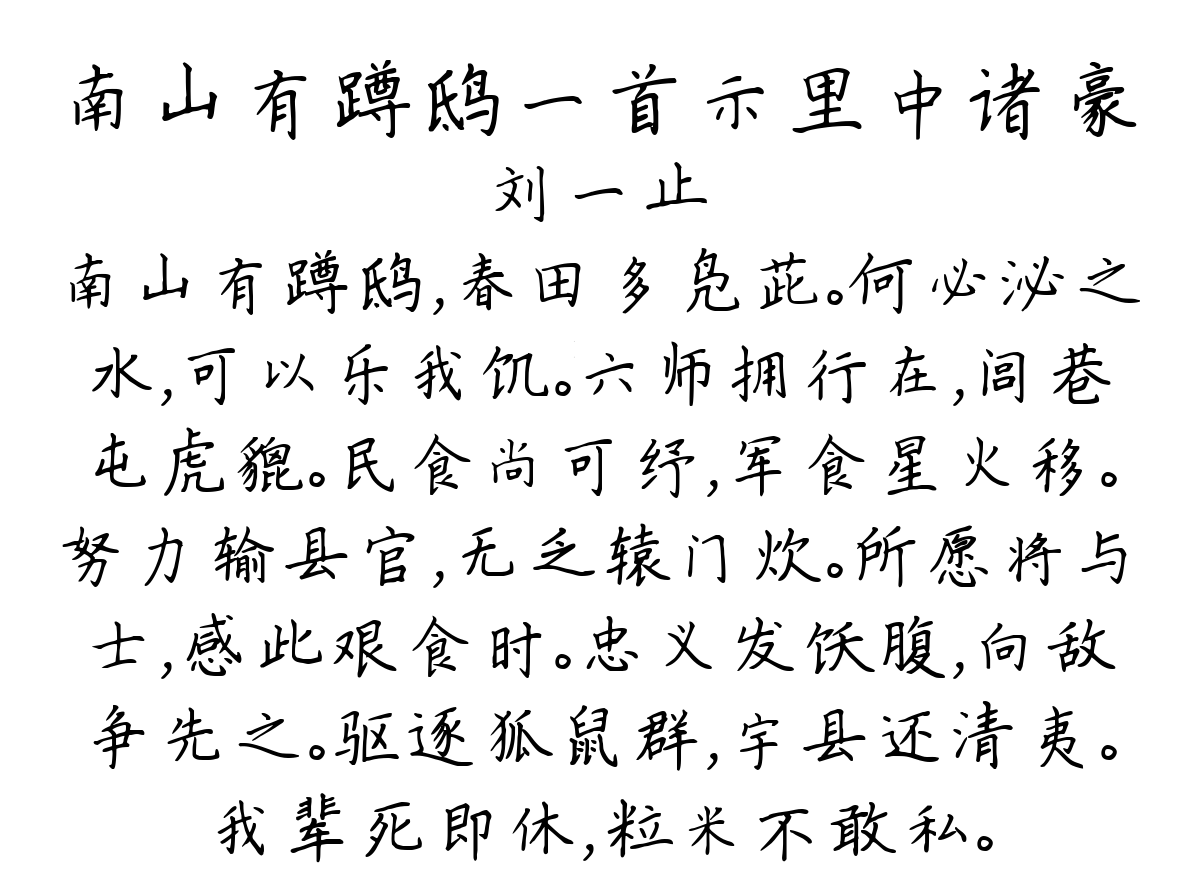 南山有蹲鸱一首示里中诸豪
刘一止
南山有蹲鸱,春田多凫茈。何必泌之
水,可以乐我饥。六师拥行在,闾巷
屯虎貔。民食尚可纾,军食星火移。
努力输县官,无乏辕门炊。所愿将与
士,感此艰食时。忠义发饫腹,向敌
争先之。驱逐狐鼠群,宇县还清夷。
我辈死即休,粒米不敢私。